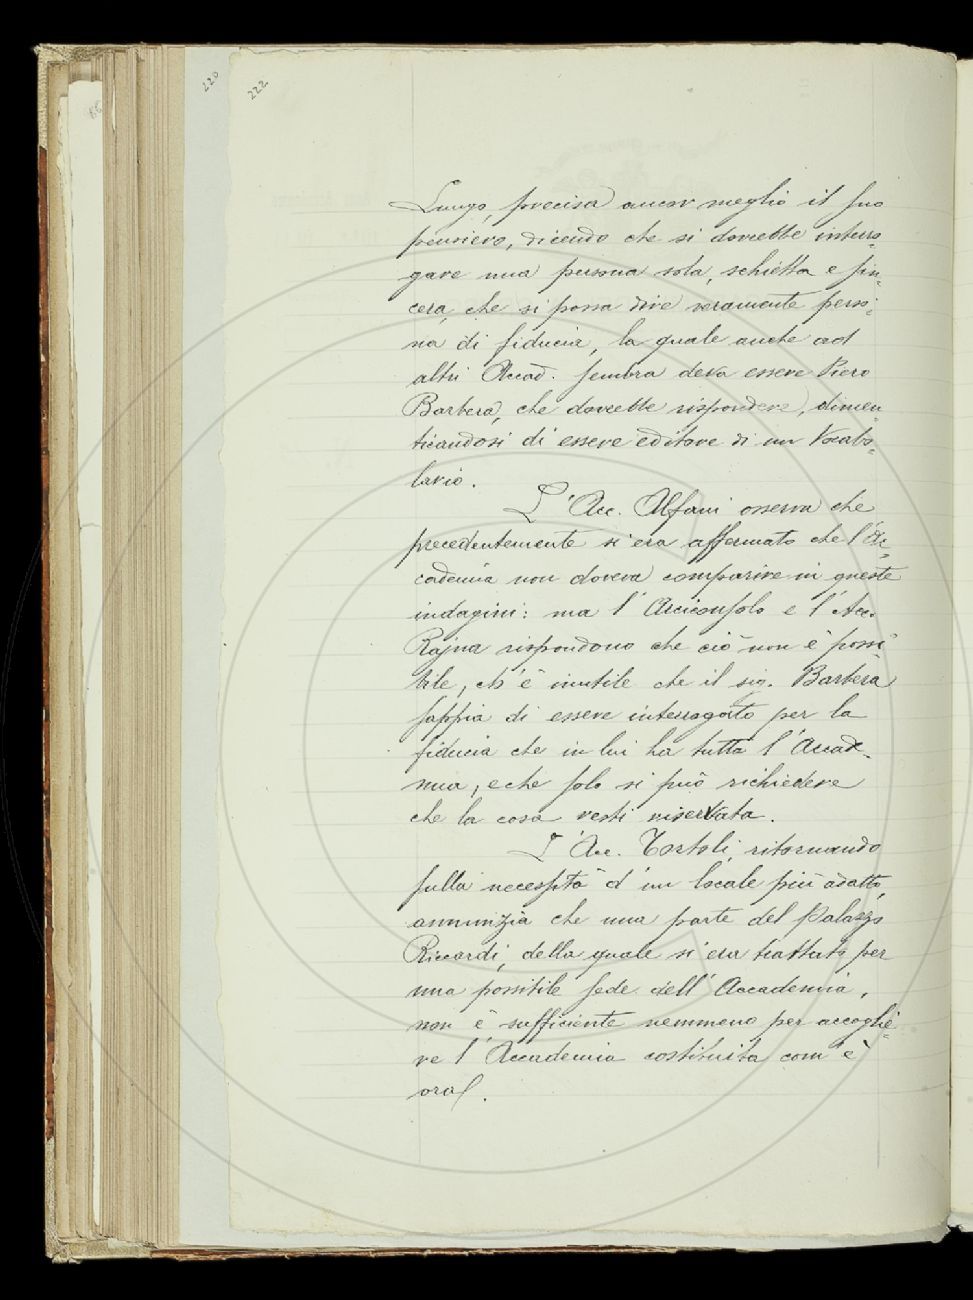 220
222
Lungo, precisa ancor meglio il suo
pensiero, dicendo che si dovrebbe interro-
gare una persona sola, schietta e sin-
cera, che si possa dire veramente perso-
na di fiducia, la quale anche ad
altri Accad. sembra deva essere Piero
Barbèra, che dovrebbe rispondere, dimen-
ticandosi di essere editore di un Vocabo-
lario.
L'Acc. Alfani osserva che
precedentemente si era affermato che l'Ac-
cademia non doveva comparire in queste
indagini: ma l'Arciconsolo e l'Acc.
Rajna rispondono che ciò non è possi-
bile, ch'è inutile che il sig. Barbèra
sappia di essere interrogato per la
fiducia che in lui ha tutta l'Accade-
mia, e che solo si può richiedere
che la cosa resti riservata.
L'Acc. Tortoli, ritornando
sulla necessità d'un locale più adatto,
annunzia che una parte del Palazzo
Riccardi, della quale si era trattato per
una possibile sede dell'Accademia,
non è sufficiente nemmeno per accoglie-
re l'Accademia costituita com'è
ora.